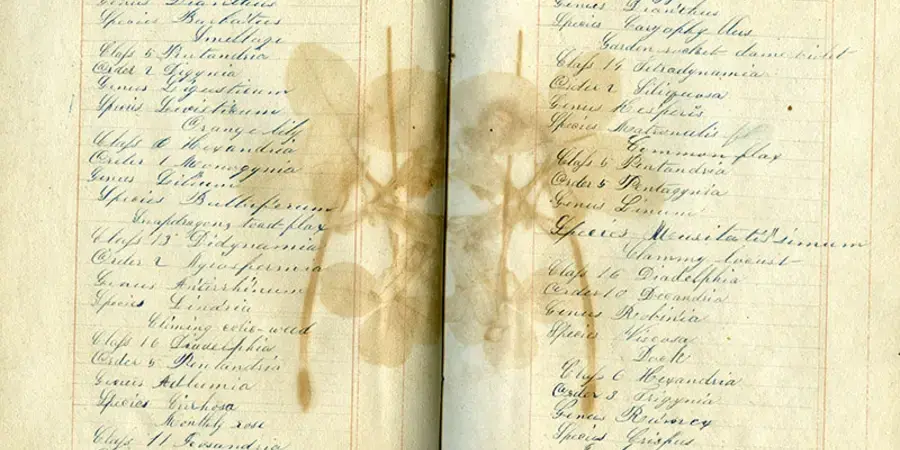 Genus Dianthus
Species Barbatus
Smellage
Class 5 Pentandria
Order 2 Digynia
Genus Ligusticum
Species Levisticum
Orange lily
Class 6 Hexandria
Order 1 Monogynia
Genus Lilium
Species Bulbiferum
Snapdragon, toad flax
Class 13 Didynamia
Order 2
Genus Antirrhinum
Species Linaria
Climing colic-weed
Class 16 Diadelphia
Order 5 Pentandria
Genus Adlumia
Species Cirrhosa
Monthly rose
Class 11 Icosandria
Genus Dianthus
Species Caryophyllus
Garden rocket dames violet
Class 14 Tetradynamia
Order 2 Siliquosa
Genus Hesperis
Species Matronalis
Common flax
Class 5 Pentandria
Order 5 Pentagynia
Genus Linum
Species
Clammy locust
Class 16 Diadelphia
Order 10 Decandria
Genus Robinia
Species Viscosa
Dock
Class 6 Hexandria
Order 3 Trigynia
Genus Rumex
Species Crispus